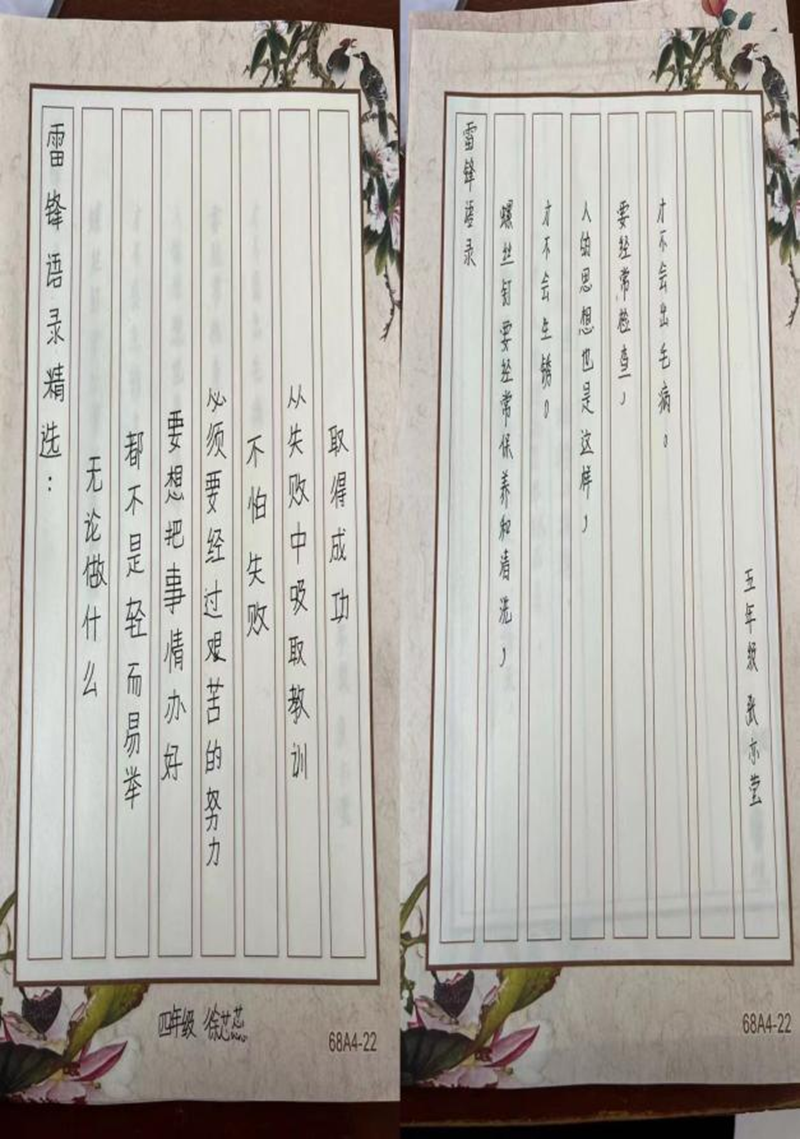 雷锋语录精选：
无论做什么
都不是轻而易举
要想把事情办好
必须要经过艰苦的努力
不怕失败
从失败中吸取教训
取得成功
四年级 徐芯蕊
68A4-22
雷锋语录
螺丝钉要经常保养和清洗，
才不会生锈。
人的思想也是这样，
要经常检查，
才不会出毛病。
五年级 张亦莹
68A4-22